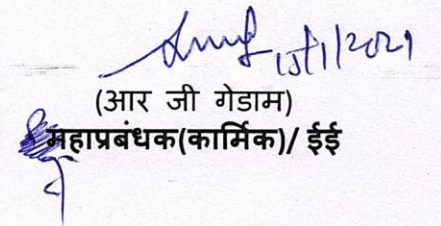 15/1/2021
(आर जी गेडाम)
महाप्रबंधक(कार्मिक)/ ईई